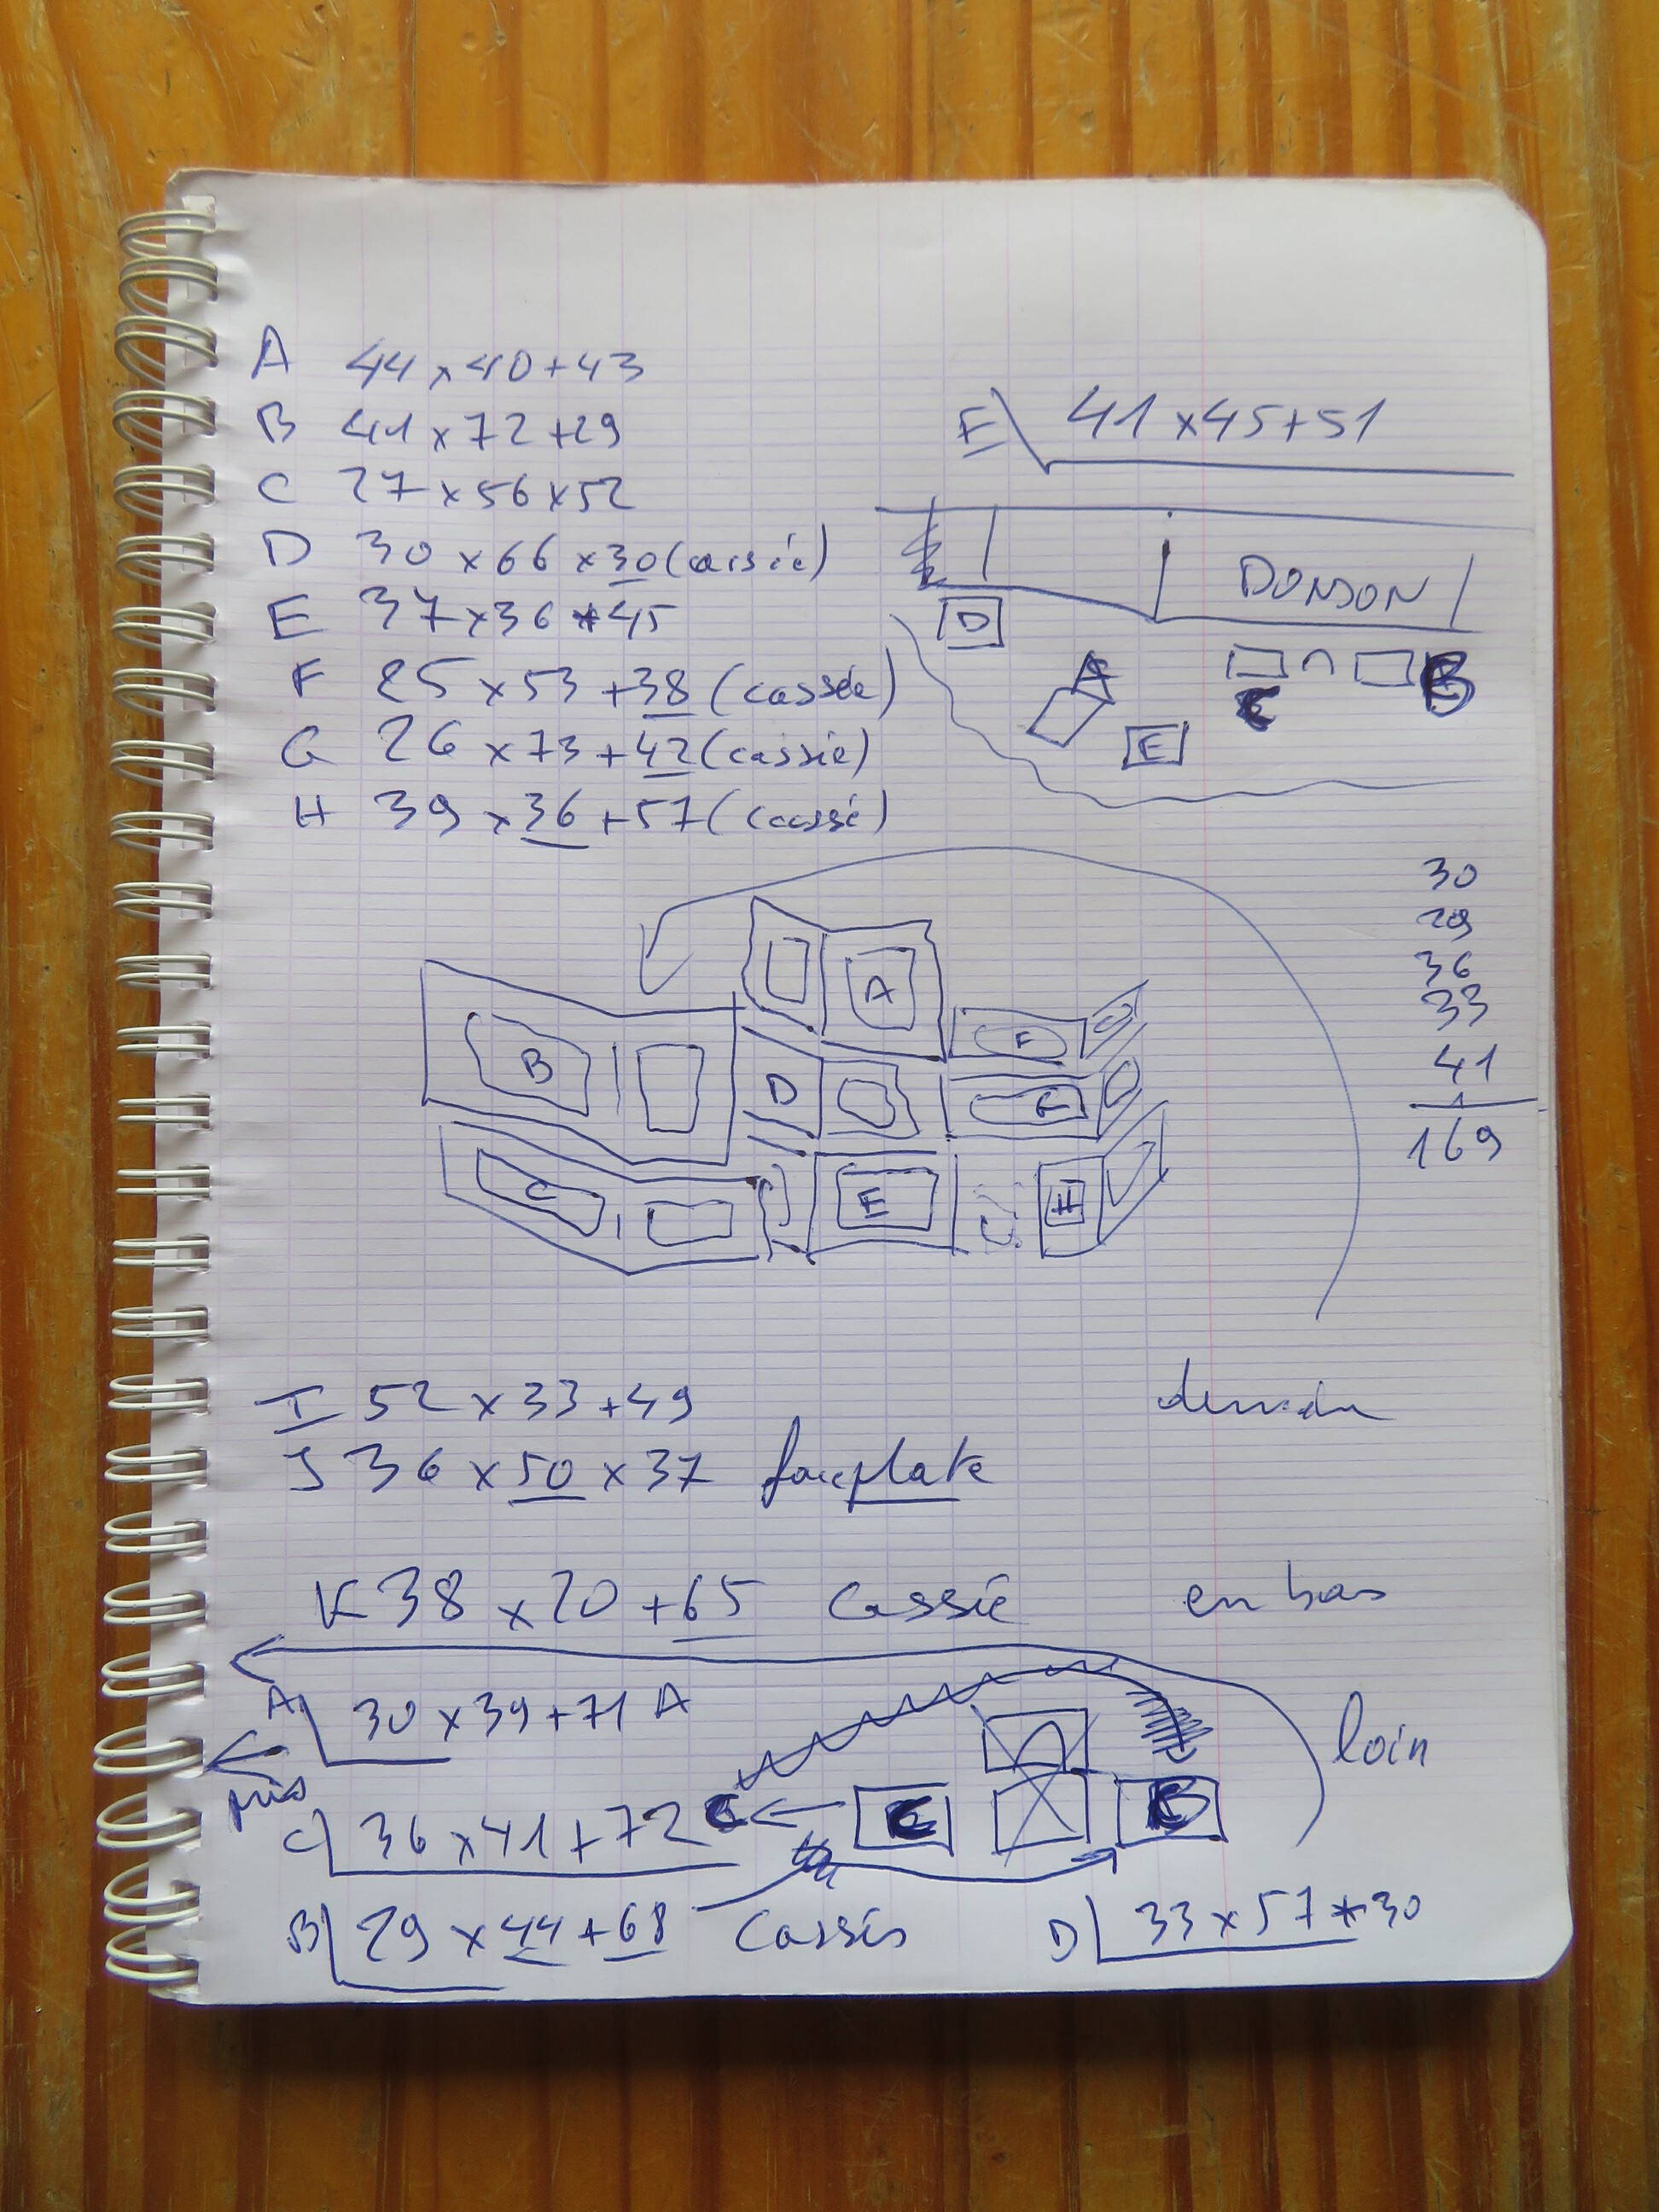 A 44 x 40 + 43
B 41 x 72 + 29
C 27 x 56 x 52
D 30 x 66 x 30 (cassée)
E 37 x 36 * 45
F 25 x 53 + 38 (cassée)
G 26 x 73 + 42 (cassié)
H 39 x 36 + 57 (cassé)
E 41 x 45 + 51
DONJON
D
A
C
B
E
30
29
36
33
41
169
A
B
F
D
C
E
H
I 52 x 33 + 49
J 36 x 50 x 37 face plate
K 38 x 20 + 65 Cassié
en bas
A 30 x 39 + 71 A
loin
C 36 x 41 + 72 C
C
B
B 29 x 44 + 68 Cassés
D 33 x 57 * 30